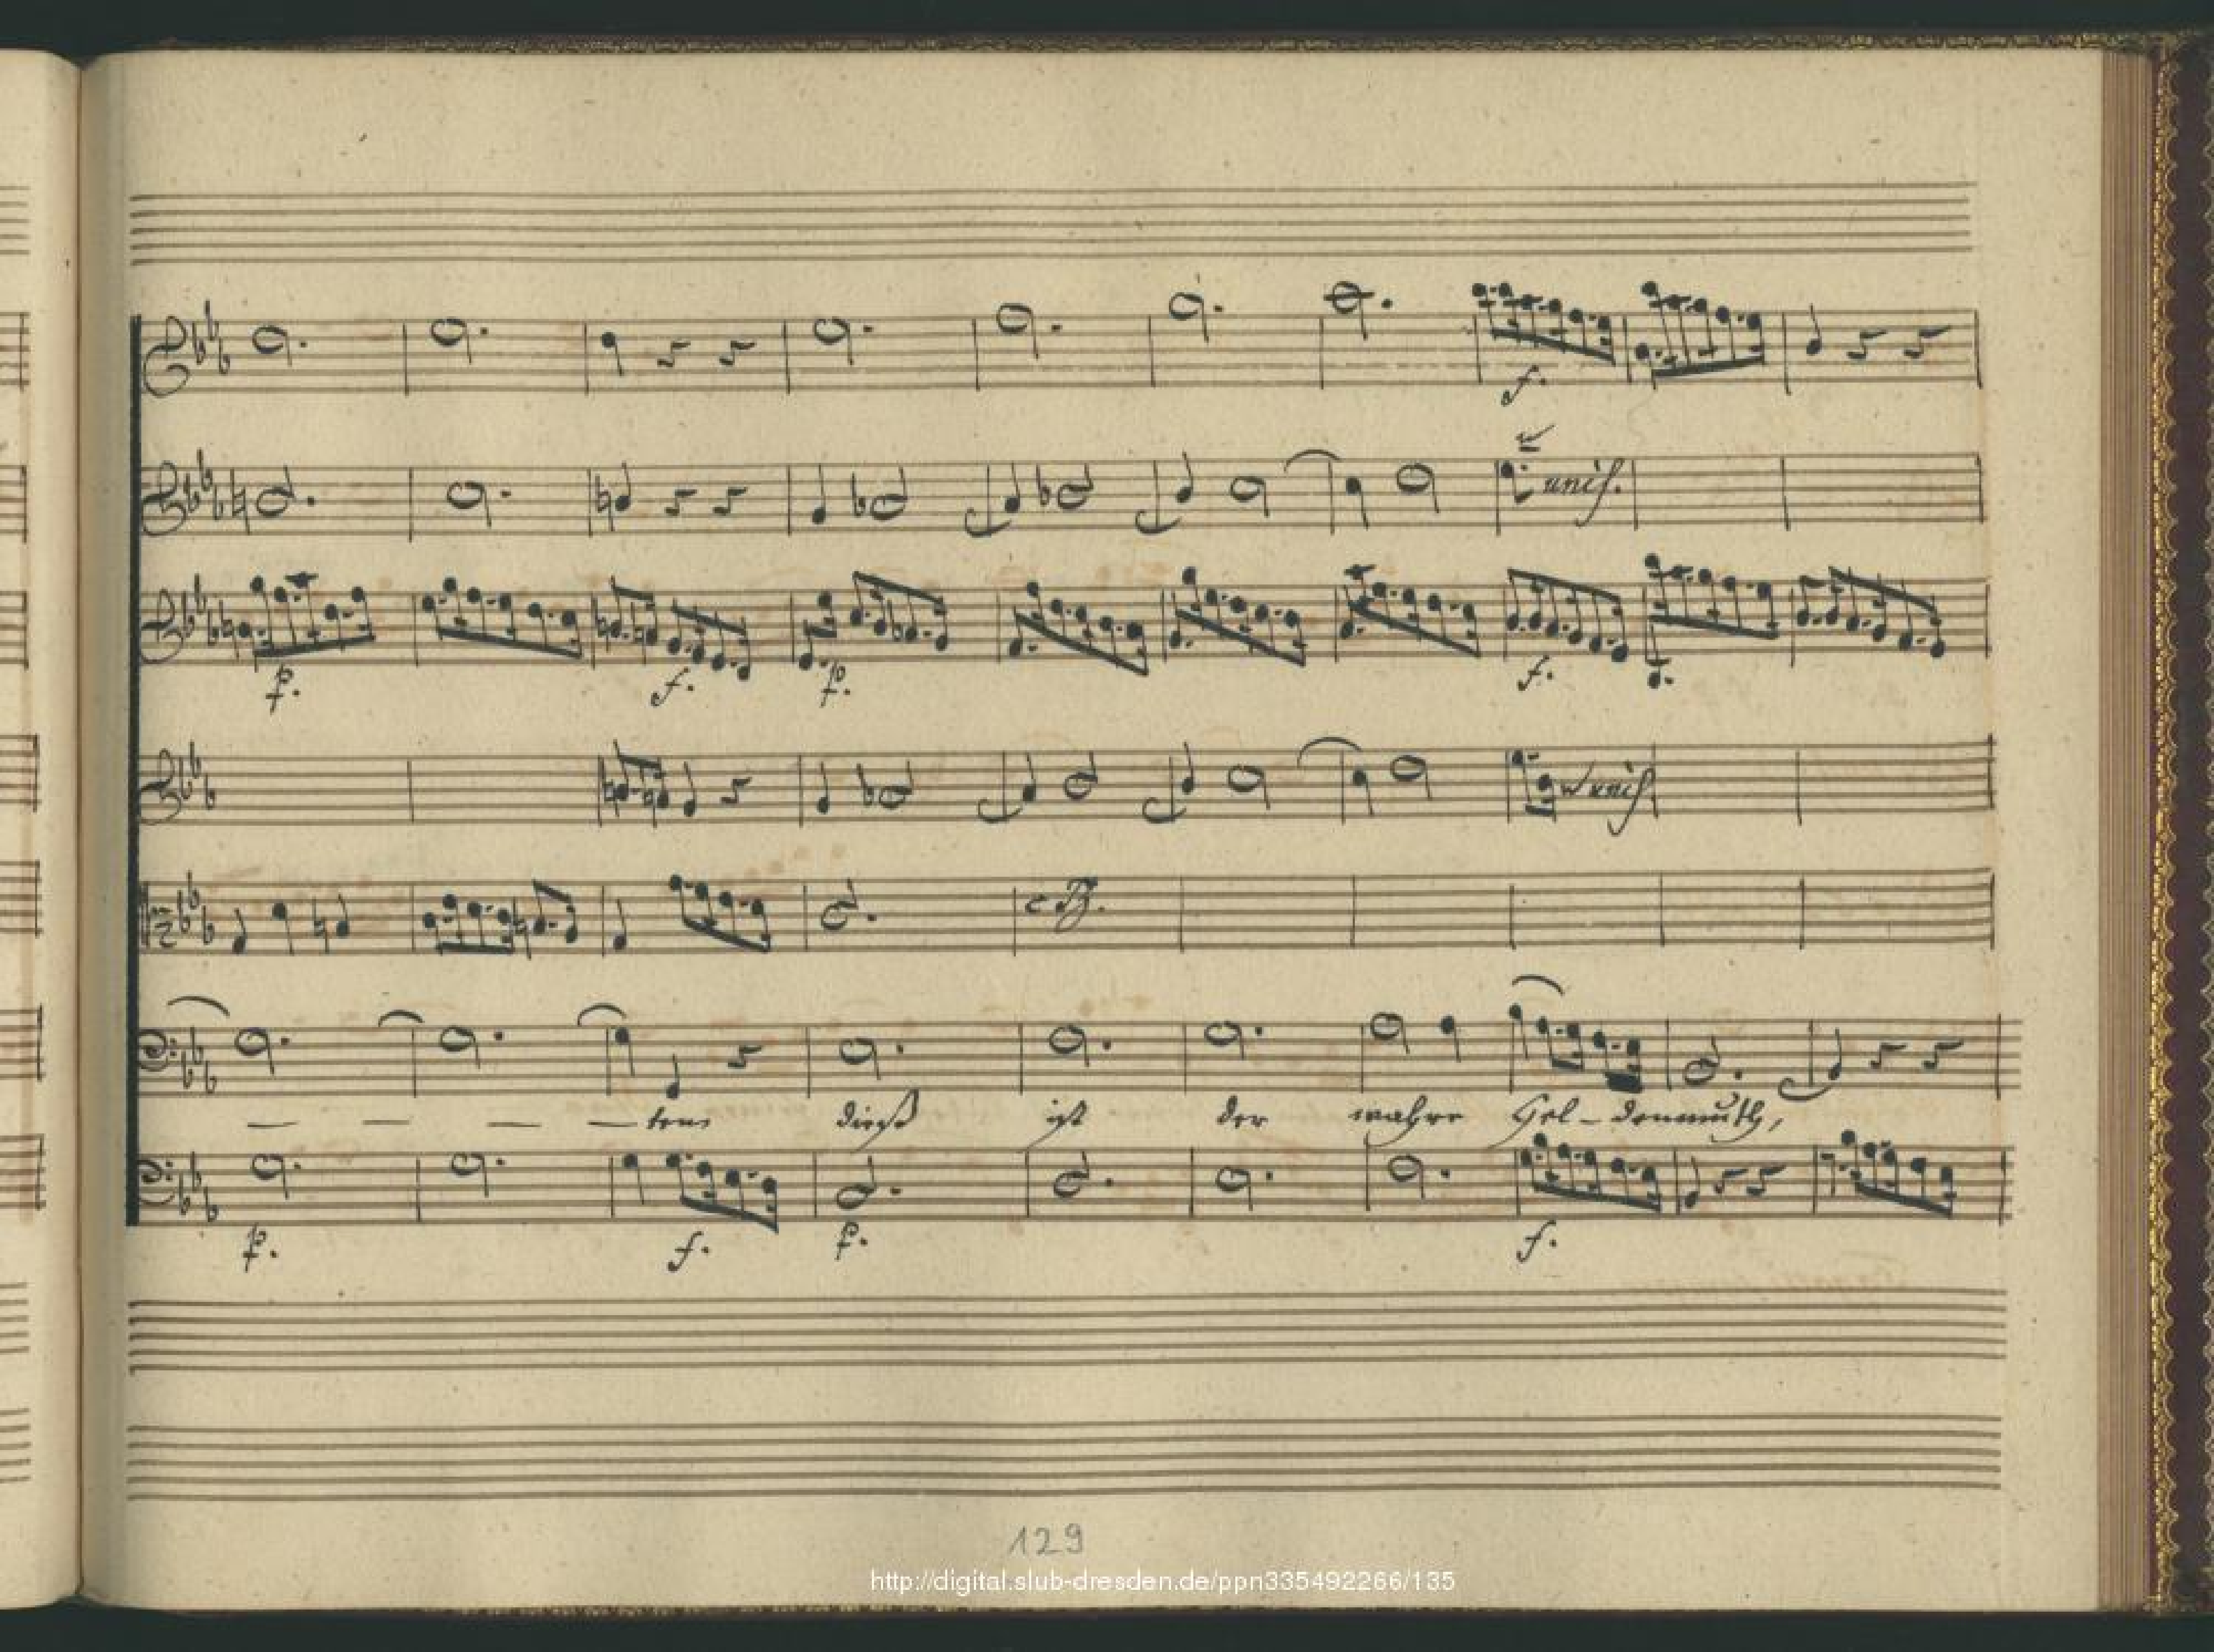 f.
unis.
p. f. p. f.
unis
c B.
— — — — ten dieß ist der wahre Hel-denmuth,
p. f. p. f.
129
http://digital.slub-dresden.de/ppn335492266/135